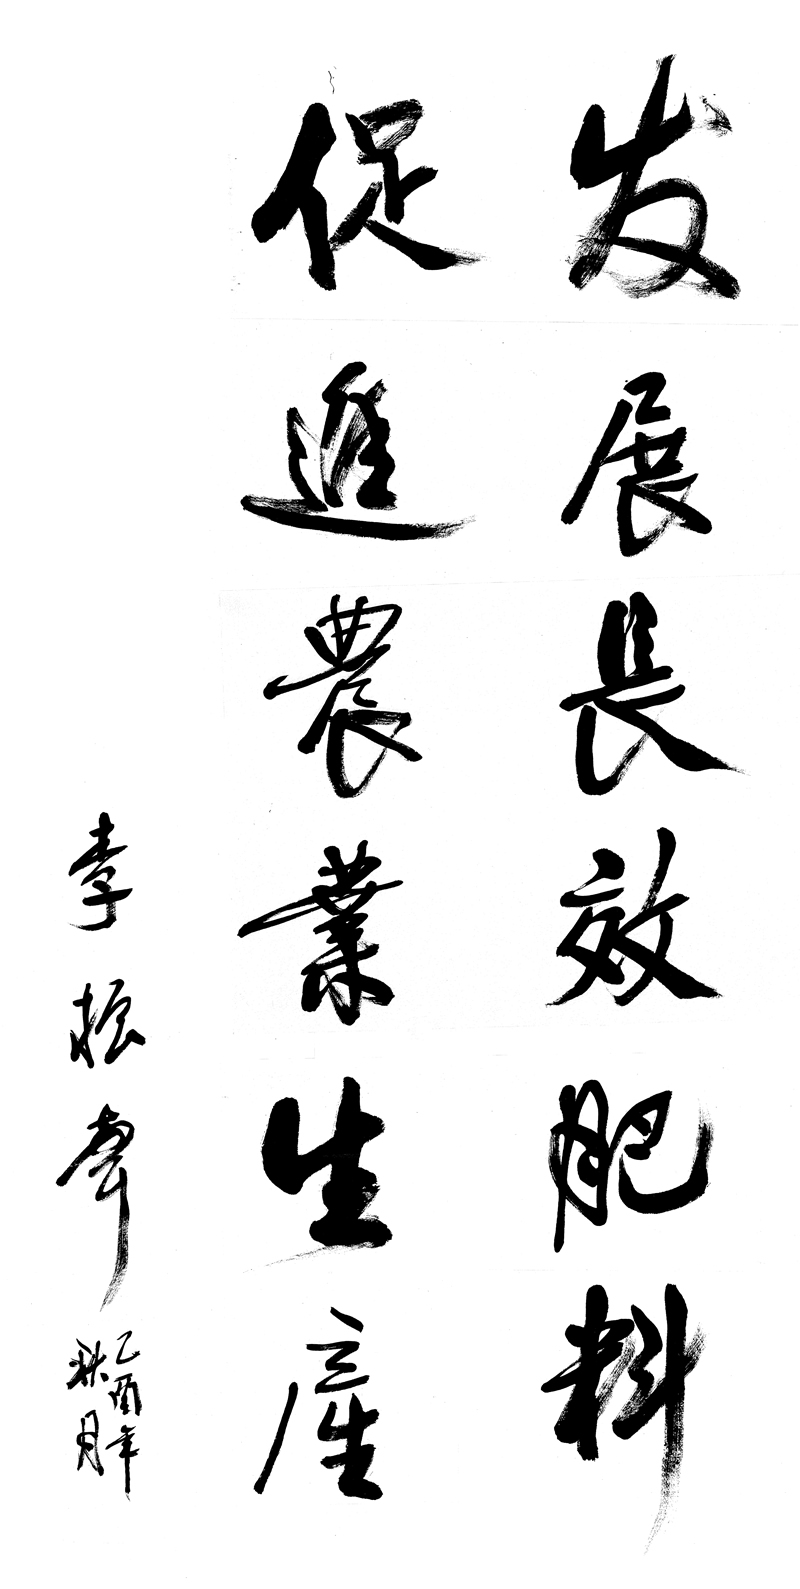 发展長效肥料
促進農業生産
李振聲
乙酉年
秋月